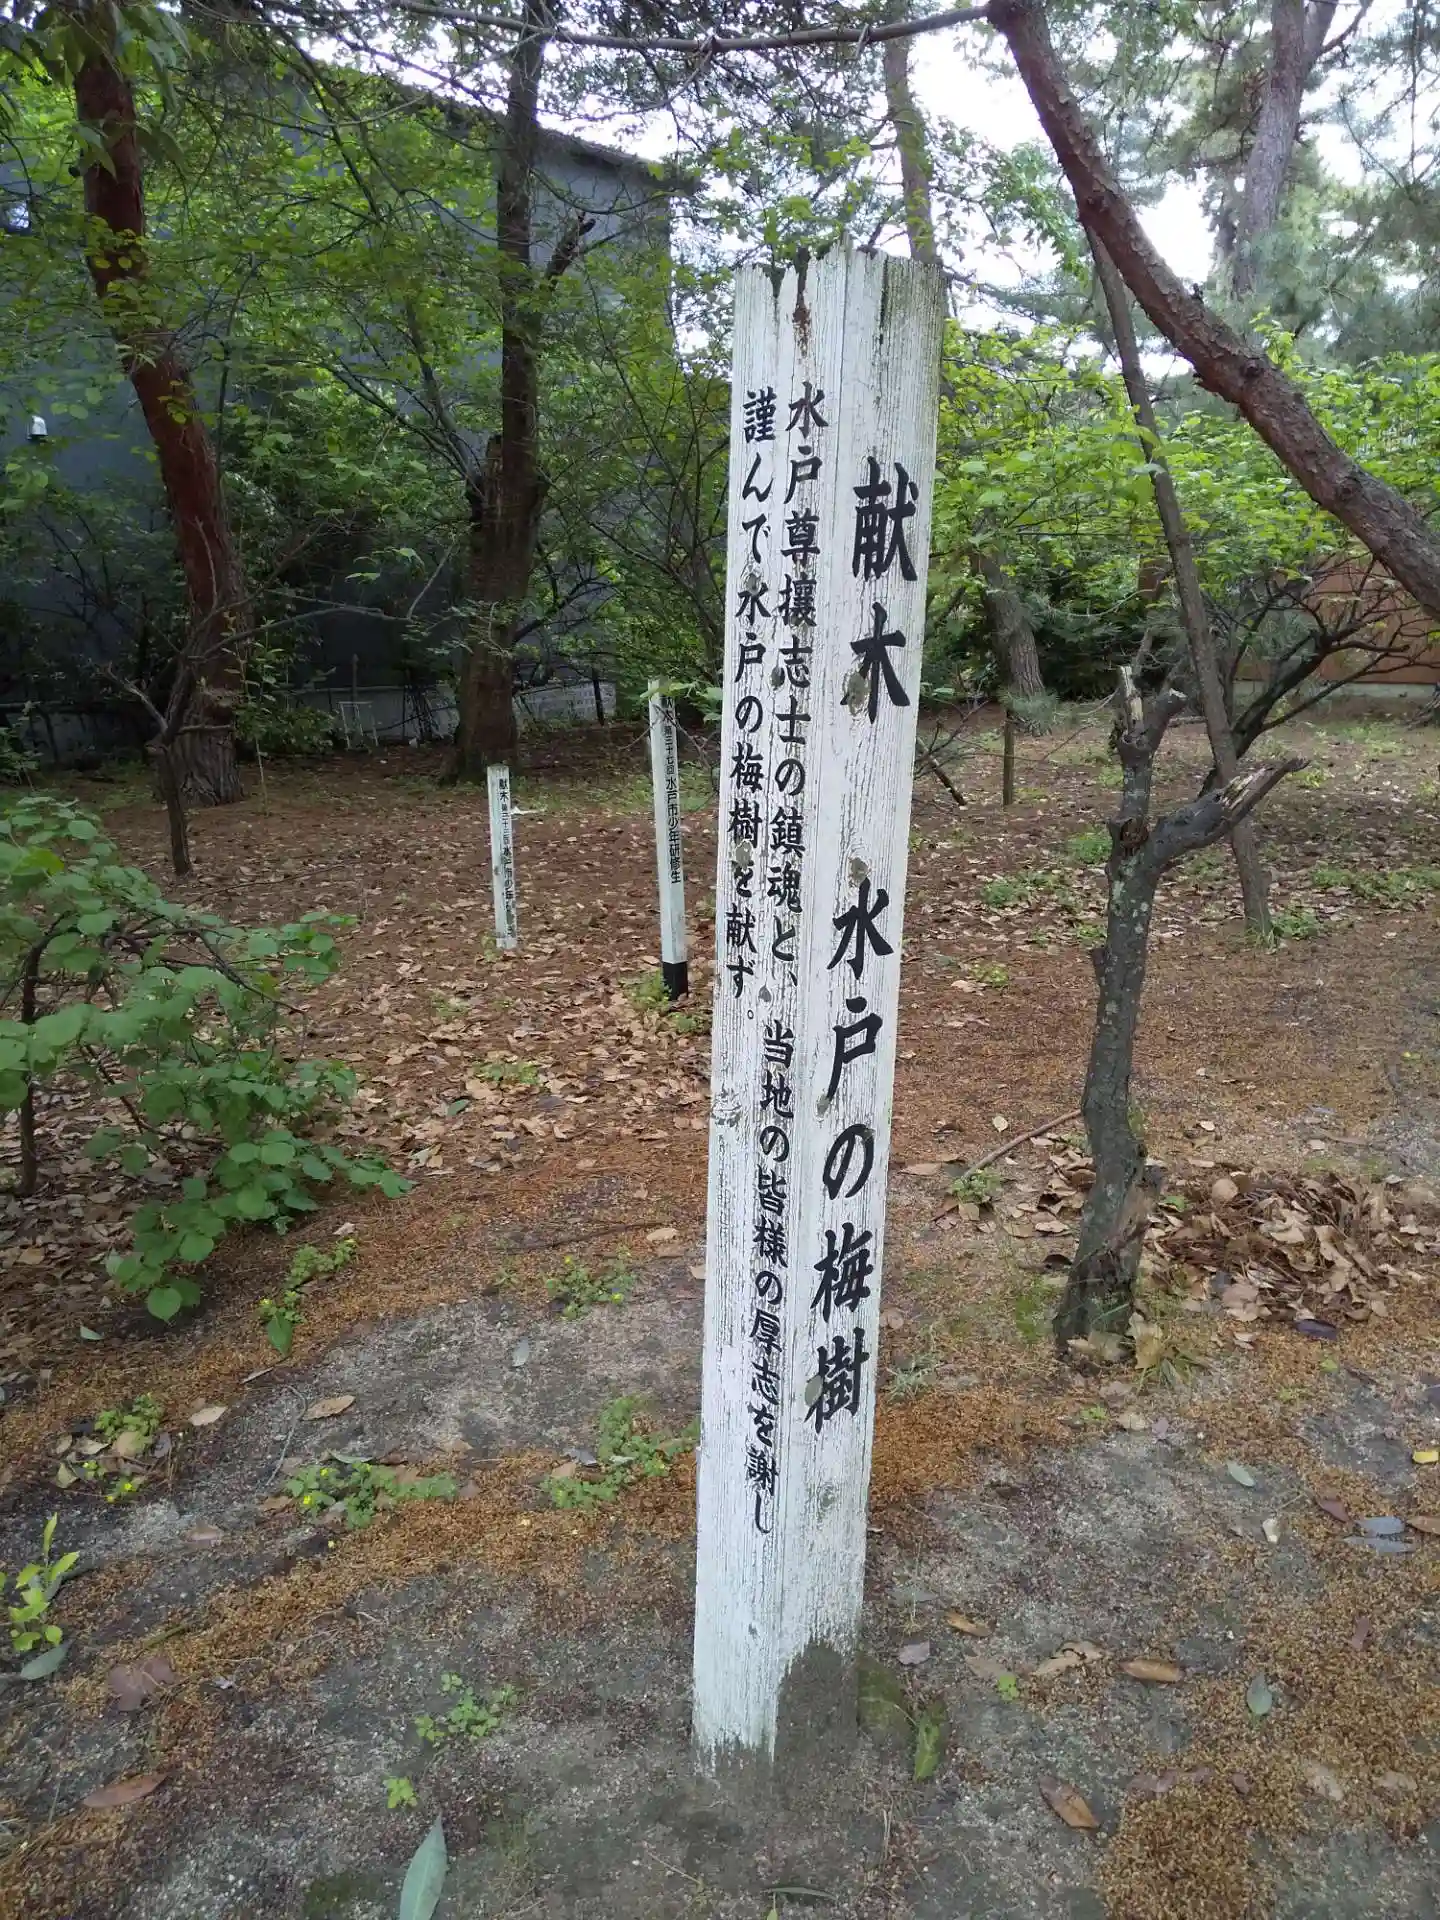 献木 水戸の梅樹
水戸尊攘志士の鎮魂と、当地の皆様の厚志を謝し
謹んで水戸の梅樹を献ず。
献木第三十七回水戸市少年研修生
献木 水戸市少年